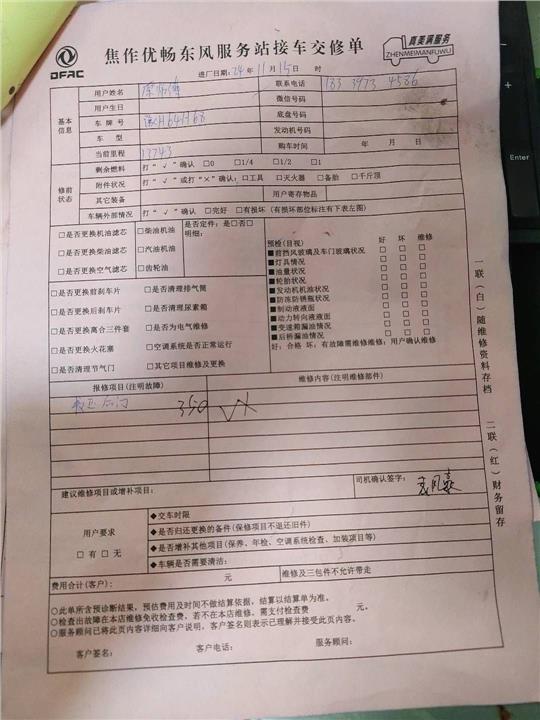 DFAC
焦作优畅东风服务站接车交修单
真美满服务
ZHENMEIMANFUWU
进厂日期:24年11月15日 时
用户姓名
联系电话 183 3973 4586
基本信息
用户生日
微信号码
车牌号 豫H64H68
底盘号码
车型
发动机号码
当前里程 17743
购车时间 年 月 日
修前状态
剩余燃料 打“√”确认 □0 □1/4 □1/2 □1
附件状况 打“√”或打“×”确认:□工具 □灭火器 □备胎 □千斤顶
其它装备
用户寄存物品
车辆外部情况 打“√”确认 □完好 □有损坏(有损坏部位标注有下表左图)
□是否更换机油滤芯 □柴油机油
是否定件:是□否□
明细:
□是否更换柴油滤芯 □汽油机油
□是否更换空气滤芯 □齿轮油
□是否更换前刹车片 □是否清理排气筒
□是否更换后刹车片 □是否清理尿素箱
□是否更换离合三件套 □是否为电气维修
□是否更换火花塞 □空调系统是否正常运行
□是否清理节气门 □其它项目维修及更换
预检(目视) 好 坏 维修
■前挡风玻璃及车门玻璃状况 □ □ □
■灯具情况 □ □ □
■油量状况 □ □ □
■轮胎状况 □ □ □
■发动机机油状况 □ □ □
■防冻防锈瓶状况 □ □ □
■制动液液面 □ □ □
■动力转向液液面 □ □ □
■变速箱漏油情况 □ □ □
■后桥漏油情况 □ □ □
好:合格 坏:有故障需维修维修:用户确认维修
报修项目(注明故障)
维修内容(注明维修部件)
校正后门 350
建议维修项目或增补项目:
司机确认签字:
用户要求
□有 □无
◆交车时限
◆是否归还更换的备件(保修项目不退还旧件)
◆是否增补其他项目(保养、年检、空调系统检查、加装项目等)
◆车辆是否需要清洁:
费用合计(客户): 元
维修及三包件不允许带走
○此单所含预诊断结果,预估费用及时间不做结算依据,结算以结算单为准。
○检查出故障在本店维修免收检查费,若不在本店维修、需支付检查费 元。
○服务顾问已将此页内容详细向客户说明,客户签名则表示已理解并接受此页内容。
客户签名: 客户电话: 服务顾问:
一联(白)随维修资料存档
二联(红)财务留存
Enter